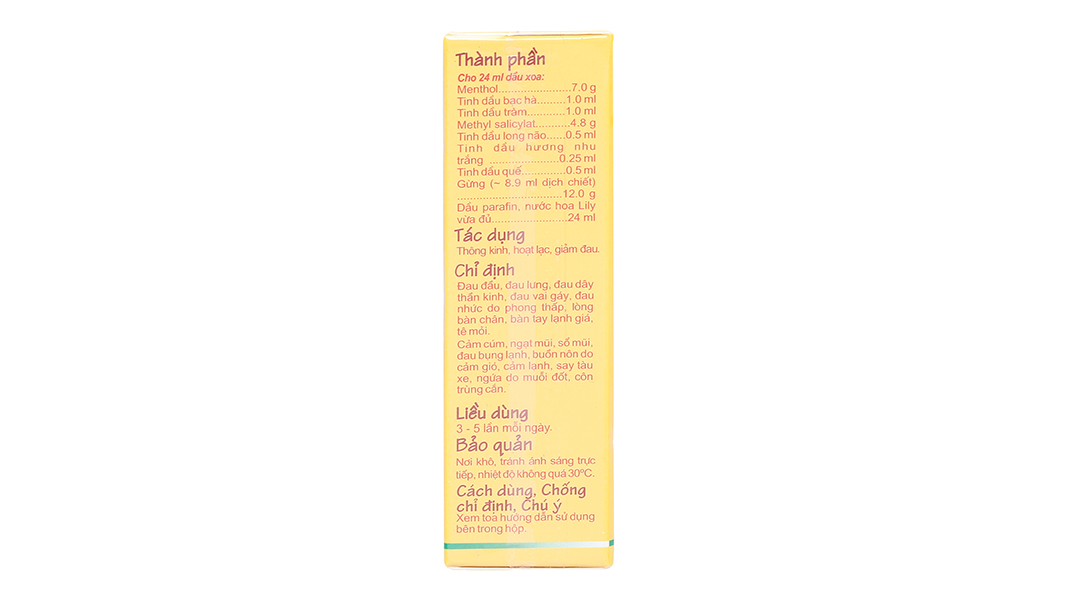 Thành phần
Cho 24 ml dầu xoa:
Menthol.......................7.0 g
Tinh dầu bạc hà.........1.0 ml
Tinh dầu tràm............1.0 ml
Methyl salicylat...........4.8 g
Tinh dầu long não......0.5 ml
Tinh dầu hương nhu
trắng ......................0.25 ml
Tinh dầu quế..............0.5 ml
Gừng (~ 8.9 ml dịch chiết)
.................................12.0 g
Dầu parafin, nước hoa Lily
vừa đủ........................24 ml
Tác dụng
Thông kinh, hoạt lạc, giảm đau.
Chỉ định
Đau đầu, đau lưng, đau dây
thần kinh, đau vai gáy, đau
nhức do phong thấp, lòng
bàn chân, bàn tay lạnh giá,
tê mỏi.
Cảm cúm, ngạt mũi, sổ mũi,
đau bụng lạnh, buồn nôn do
cảm gió, cảm lạnh, say tàu
xe, ngứa do muỗi đốt, côn
trùng cắn.
Liều dùng
3 - 5 lần mỗi ngày.
Bảo quản
Nơi khô, tránh ánh sáng trực
tiếp, nhiệt độ không quá 30ºC.
Cách dùng, Chống
chỉ định, Chú ý
Xem toa hướng dẫn sử dụng
bên trong hộp.